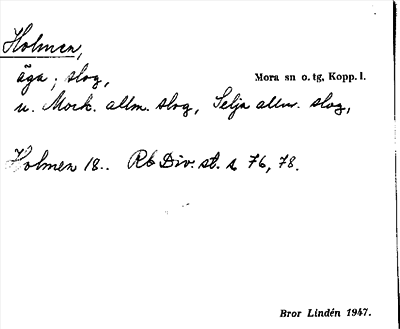 Holmen,
äga ; slog,
Mora sn o. tg, Kopp. l.
u. Mock. allm. slog, Selja allm. slog,
Holmen 18.. Rb Div. st. s 76, 78.
Bror Lindén 1947.